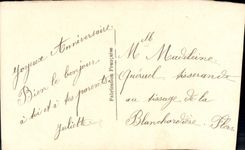 Joyeux Anniversaire
Bien le bonjour
à toi et à tes parents
Juliette
Fabrication Française
M
Mle Madeleine
tisserande
au tissage de la
Blanchardière